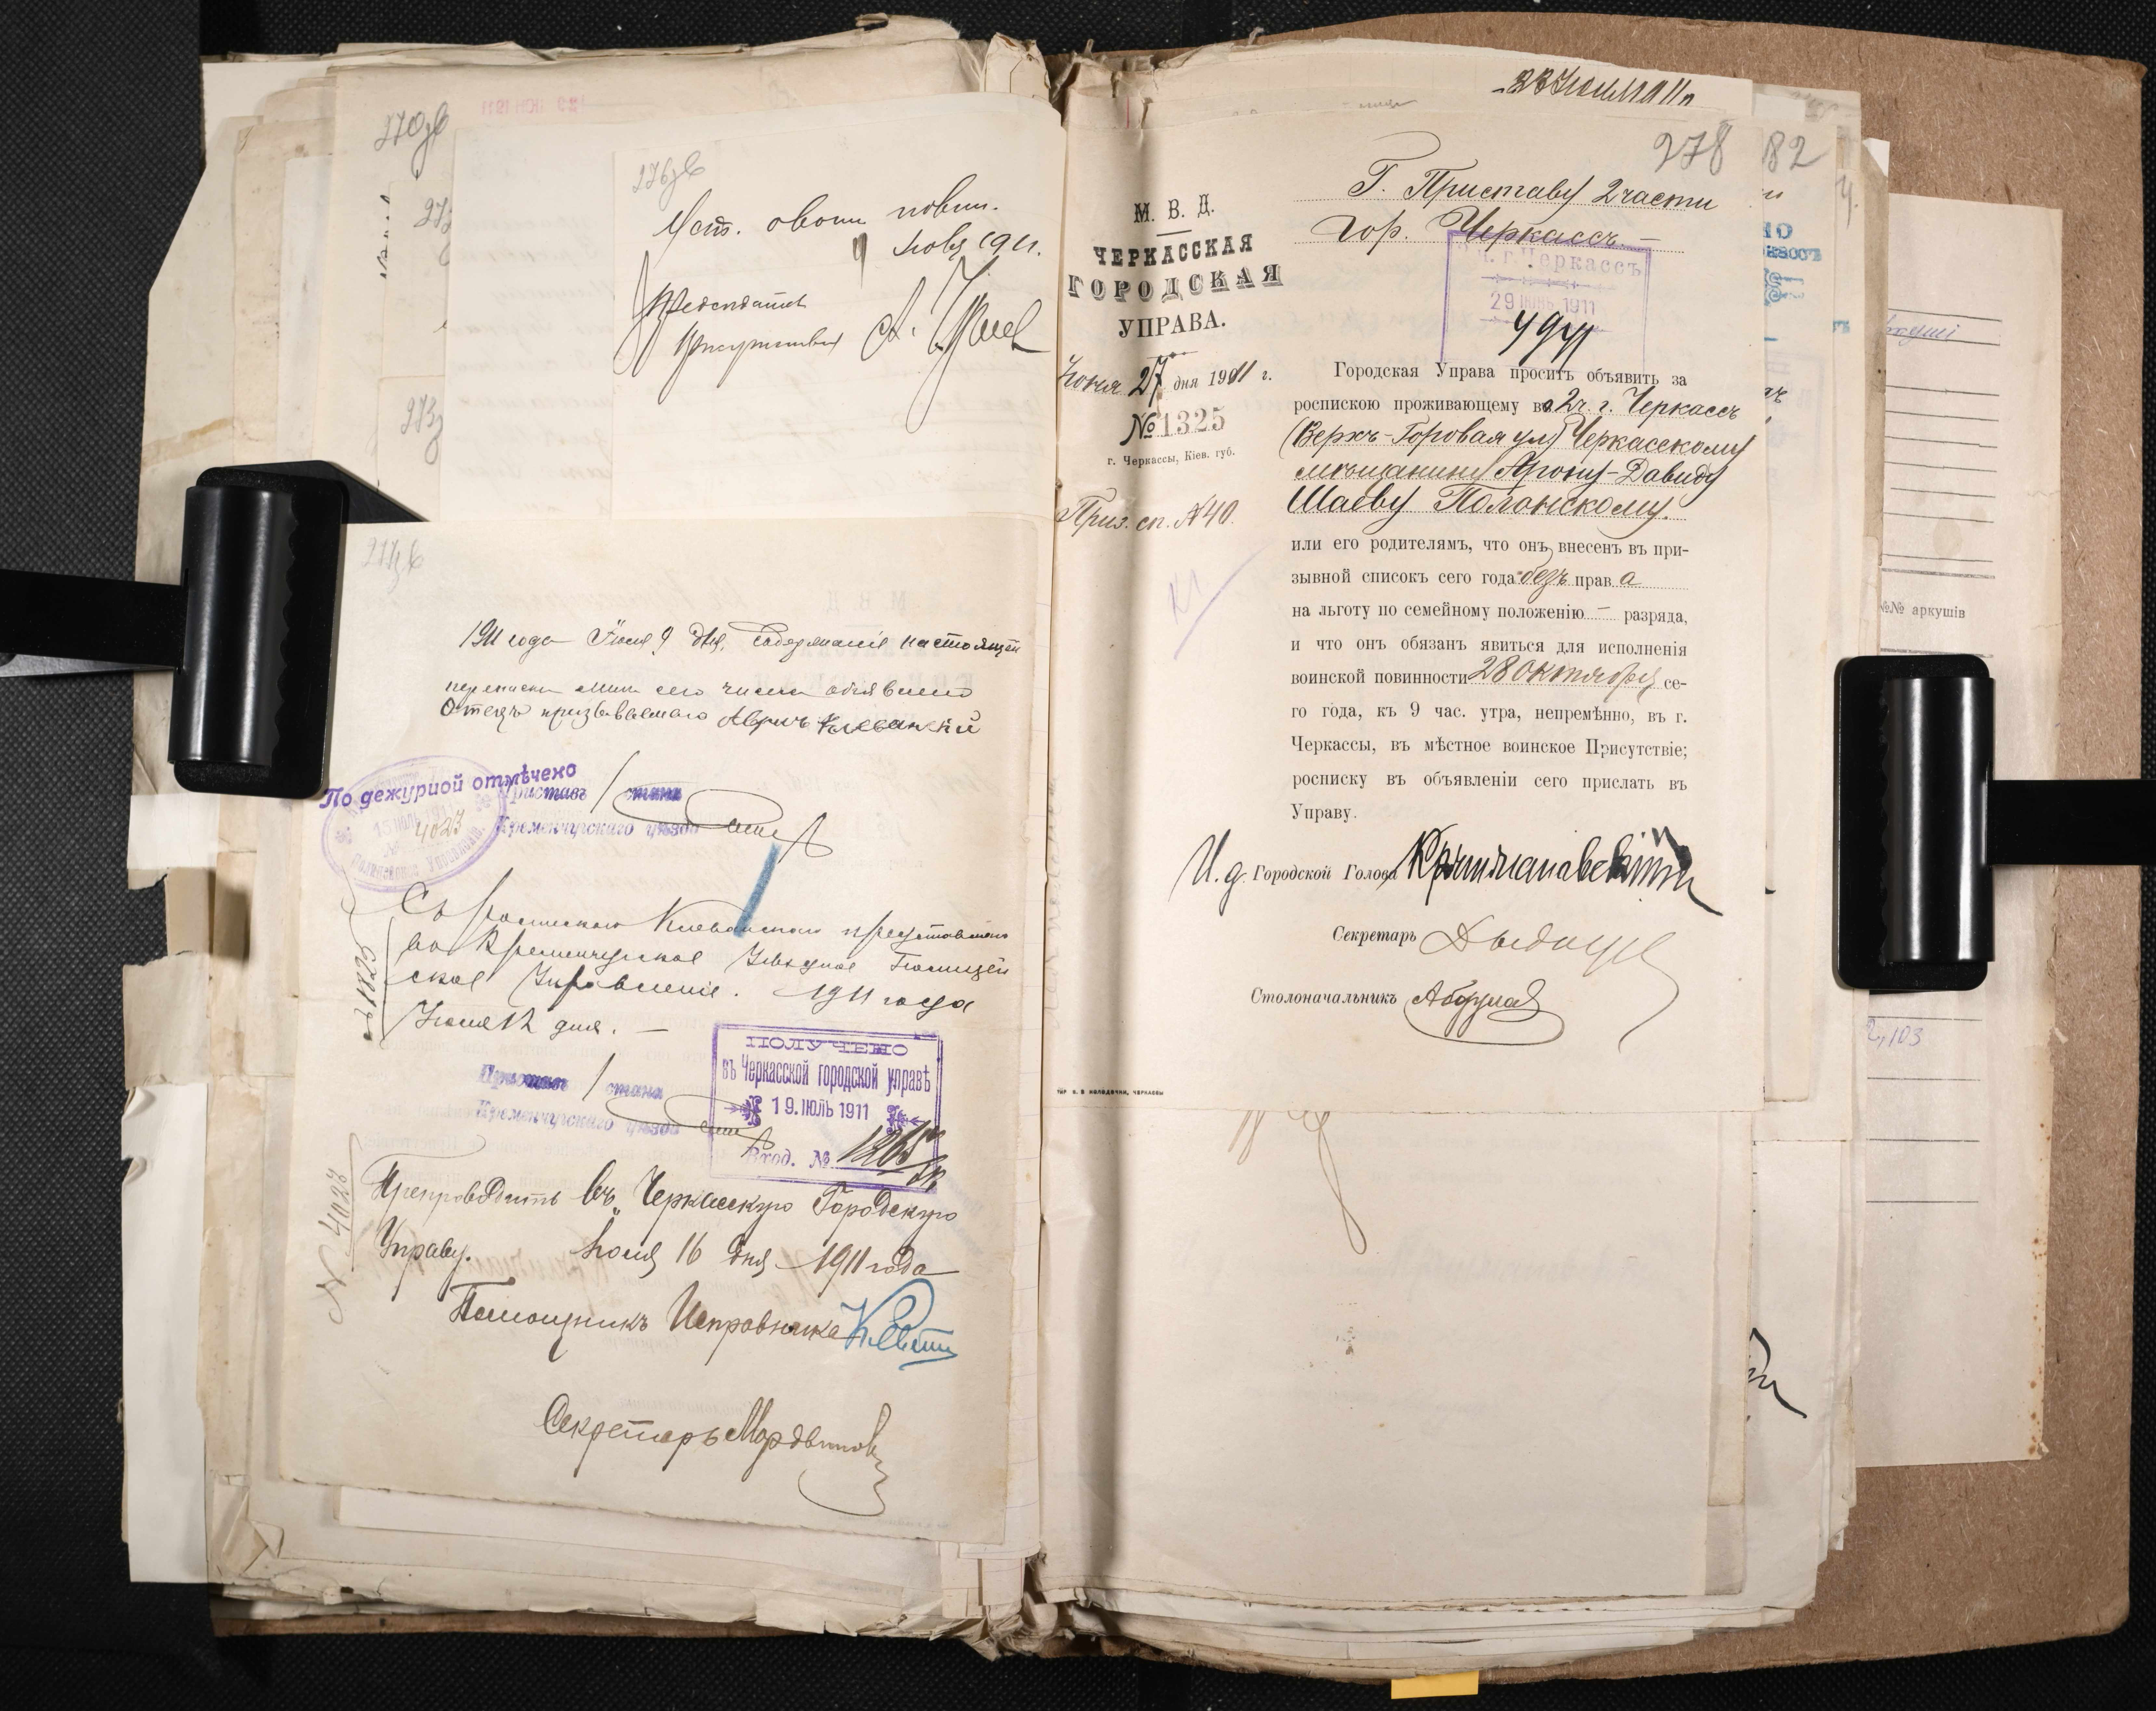 270зв
276зв
9 Іюля 1911.
Предсѣдатель
Присутствія
273
274зв
1911 года Іюля 9 дня, Содержаніе настоящей
переписки мною сего числа объявлено
Отецъ призываемаго Аврумъ Клебанскій
По дежурной отмѣчено
Приставъ 1 стана
Кременчугскаго уѣзда
15 ІЮЛЬ 1911
4023
Полицейское Управленіе
Съ роспискою Клебанскаго представлено
въ Кременчугское Уѣздное Полицей
ское Управленіе. 1911 года
Іюля 12 дня. —
№ 1823
Приставъ 1 стана
Кременчугскаго уѣзда
ПОЛУЧЕНО
въ Черкасской городской управѣ
19. ІЮЛЬ 1911
Вход. № 1265
№ 4023
Препроводить въ Черкасскую Городскую
Управу. Іюля 16 дня 1911 года
Помощникъ Исправника
Секретарь Мордвинов
278
182
М. В. Д.
ЧЕРКАССКАЯ
ГОРОДСКАЯ
УПРАВА.
Іюня 27 дня 1911 г.
№ 1325
г. Черкассы, Кіев. губ.
Приз. сп. № 40.
Г. Приставу 2 части
гор. Черкассъ. —
ч. г. Черкассъ
29 ІЮНЬ 1911
Городская Управа проситъ объявить за
роспискою проживающему во 2 ч. г. Черкассъ
(Верхъ-Горовая ул) Черкасскому
мѣщанину Арону-Давиду
Шаеву Полонскому.
или его родителямъ, что онъ внесенъ въ при-
зывной списокъ сего года безъ права
на льготу по семейному положенію — разряда,
и что онъ обязанъ явиться для исполненія
воинской повинности 28 октября се-
го года, къ 9 час. утра, непремѣнно, въ г.
Черкассы, въ мѣстное воинское Присутствіе;
росписку въ объявленіи сего прислать въ
Управу.
И. д. Городской Голова
Секретарь
Столоначальникъ
№№ аркушів
2,103